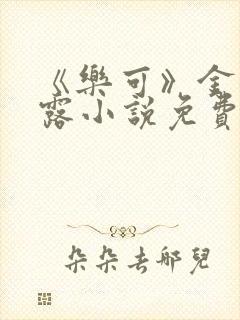 《樂可》金
露小說免費
朵朵去哪兒